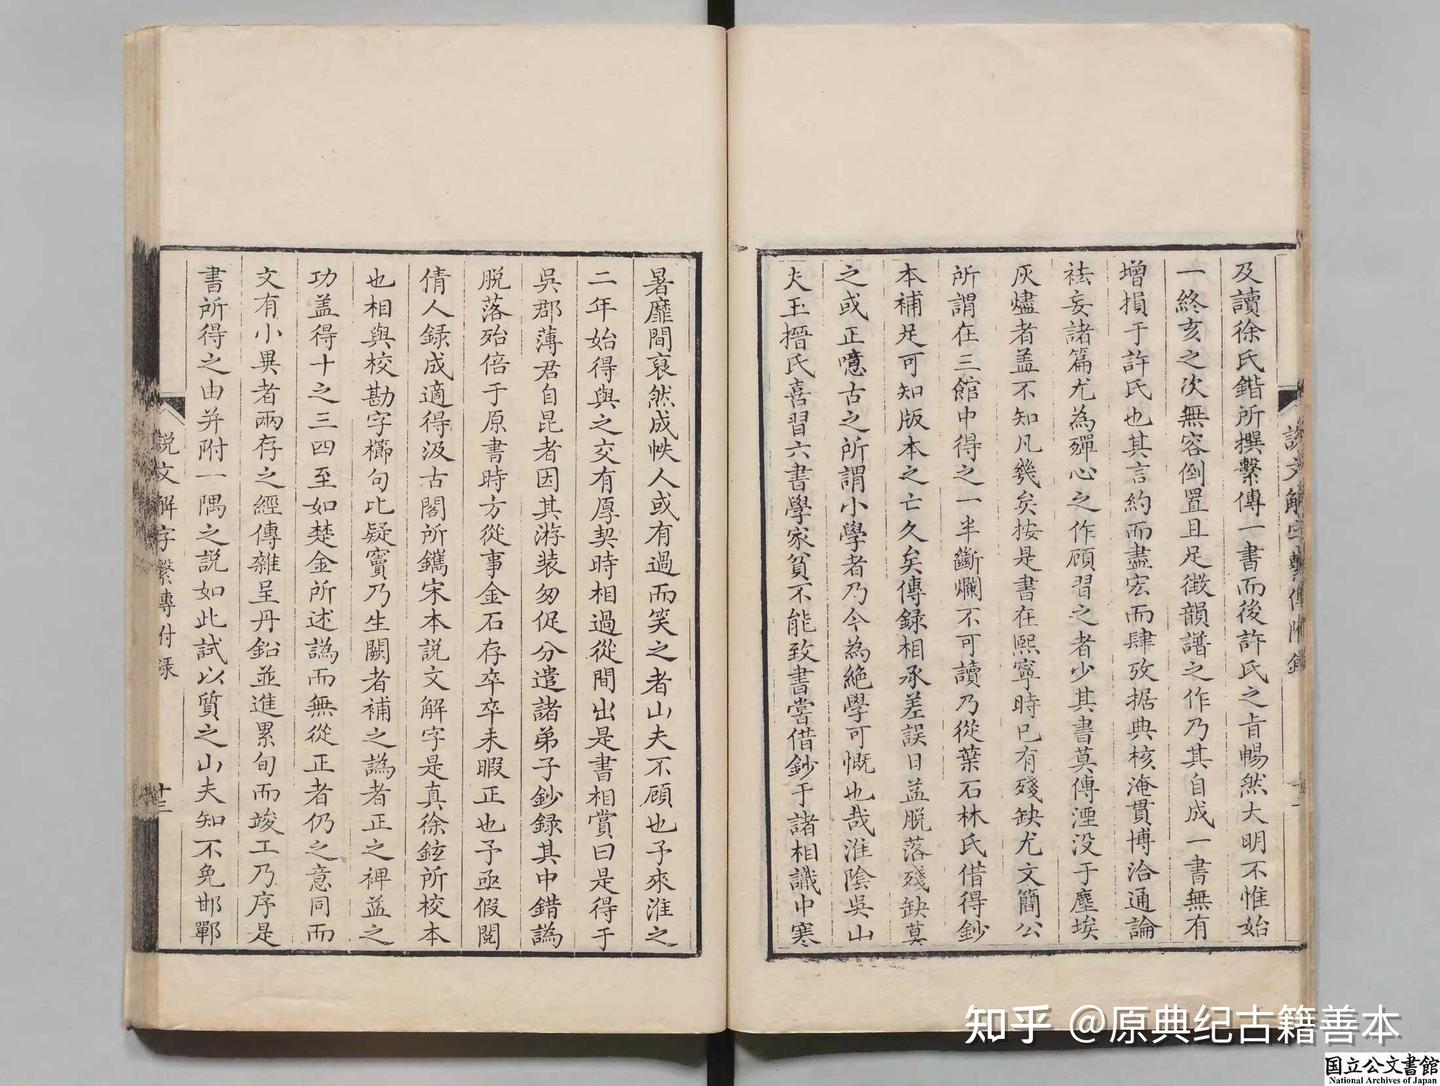 及讀徐氏鍇所撰繫傳一書而後許氏之旨暢然大明不惟始
一終亥之次無容倒置且足徵韻譜之作乃其自成一書無有
增損于許氏也其言約而盡宏而肆攷据典核淹貫博洽通論
祛妄諸篇尤為殫心之作顧習之者少其書莫傳湮没于塵埃
灰燼者盖不知凡幾矣按是書在熙寧時已有殘缺尤文簡公
所謂在三館中得之一半斷爛不可讀乃從葉石林氏借得鈔
本補足可知版本之亡久矣傳録相承差誤日益脱落殘缺莫
之或正噫古之所謂小學者乃今為絶學可慨也哉淮陰吳山
夫玉搢氏喜習六書學家貧不能致書嘗借鈔于諸相識中寒
說文解字繫傳附錄
十二
暑靡間裒然成帙人或有過而笑之者山夫不顧也予來淮之
二年始得與之交有厚契時相過從間出是書相賞曰是得于
吳郡薄君自昆者因其游装匆促分遣諸弟子鈔録其中錯譌
脱落殆倍于原書時方從事金石存卒卒未暇正也予亟假閱
倩人録成適得汲古閣所鐫宋本説文解字是真徐鉉所校本
也相與校勘字櫛句比疑竇乃生闕者補之譌者正之裨益之
功盖得十之三四至如楚金所述譌而無從正者仍之意同而
文有小異者兩存之經傳雜呈丹鉛並進累旬而竣工乃序是
書所得之由并附一隅之説如此試以質之山夫知不免邯鄲
說文解字繫傳付录
十三
知乎 @原典纪古籍善本
国立公文書館
National Archives of Japan